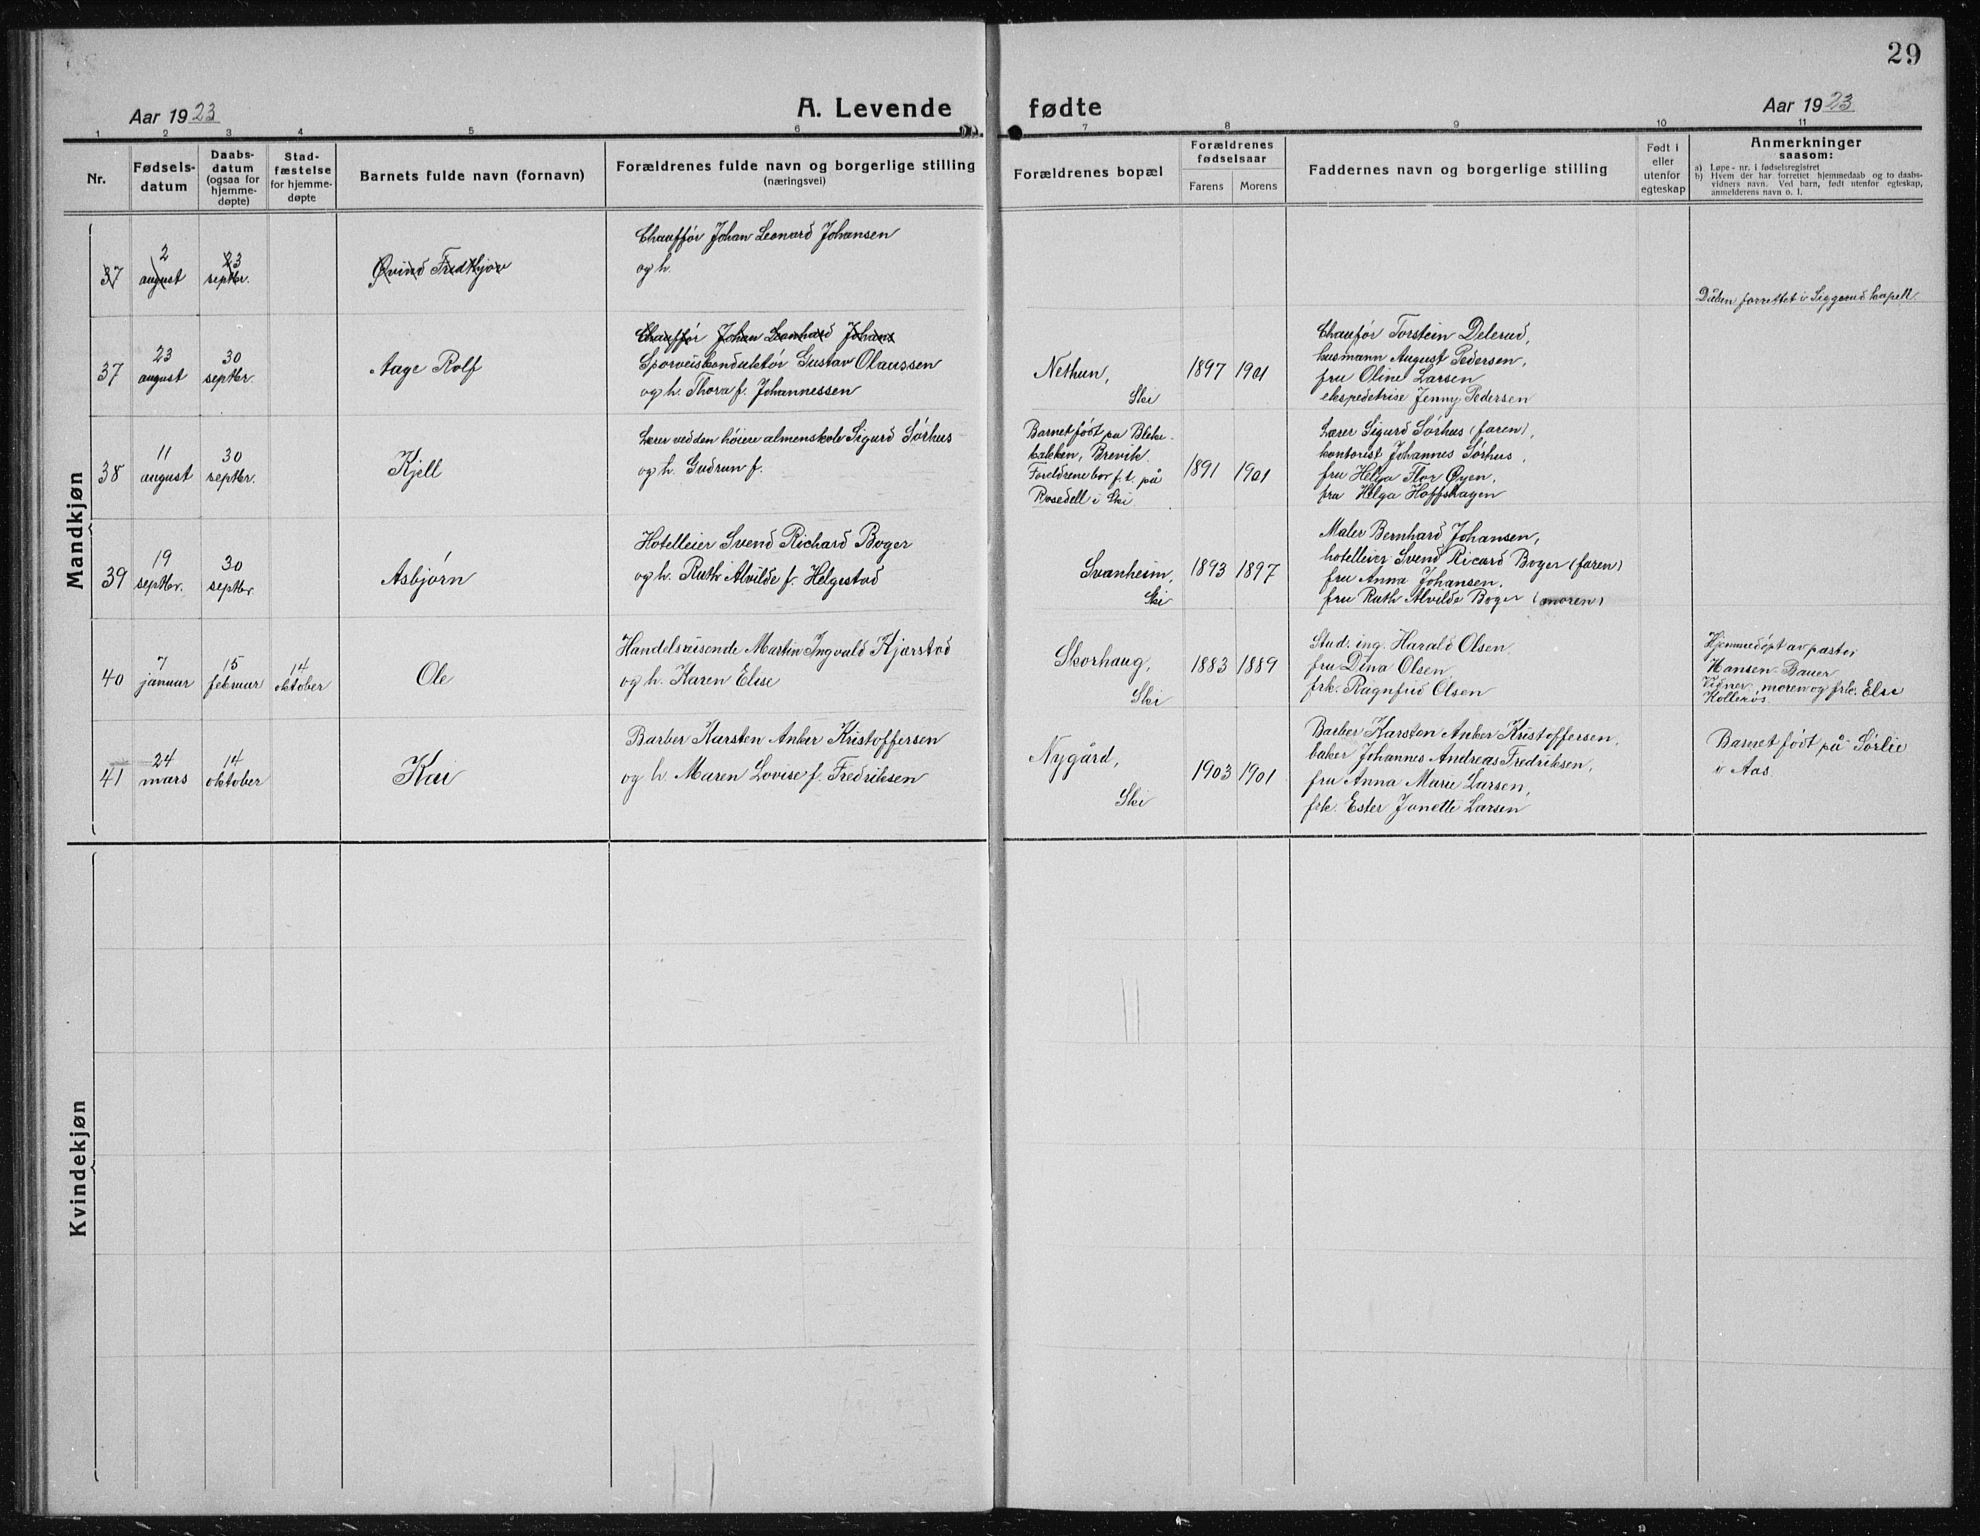 29
Aar 1923
A. Levende fødte
Aar 1923
1 2 3 4 5 6 7 8 9 10 11
Nr.
Fødsels-
datum
Daabs-
datum
(ogsaa for
hjemme-
døpte)
Stad-
fæstelse
for hjemme-
døpte
Barnets fulde navn (fornavn)
Forældrenes fulde navn og borgerlige stilling
(næringsvei)
Forældrenes bopæl
Forældrenes
fødselsaar
Farens Morens
Faddernes navn og borgerlige stilling
Født i
eller
utenfor
egteskap
Anmerkninger
saasom:
a) Løpe-nr. i fødselsregistret
b) Hvem der har forrettet hjemmedaab og to daabs-
vidners navn. Ved barn, født utenfor egteskap,
anmelderens navn o. l.
Mandkjøn
37
2
august
23
septbr.
Øvind Fredkjov
Chauffør Johan Leonard Johansen
og h.
Dåben forrettet i Siggerud kapell
37
23
august
30
septbr.
Aage Rolf
Chauffør Johan Leonhard Johans
Sporveiskonduktør Gustav Olaussen
og h. Thora f. Johannessen
Nethun,
Ski
1897 1901
Chaufør Torstein Delerud,
husmann August Pedersen,
fru Oline Larsen
ekspedetrise Jenny Pedersen
38
11
august
30
septbr.
Kjell
Lærer ved den høiere almenskole Sigurd Sørhus
og h. Gudrun f.
Barnet født på Bleke-
bakken, Brevik.
Foreldrene bor f. t. på
Rosedell i Ski
1891 1901
Lærer Sigurd Sørhus (faren),
kontorist Johannes Sørhus,
fru Helga Flor Øyen,
fru Helga Hoffshagen
39
19
septbr.
30
septbr.
Asbjørn
Hotelleier Svend Richard Boger
og h. Ruth Alvilde f. Helgestad
Svanheim,
Ski
1893 1897
Maler Bernhard Johansen,
hotelleier Svend Ricard Boger (faren)
fru Anna Johansen,
fru Ruth Alvilde Boger (moren)
40
7
januar
15
februar
14
oktober
Ole
Handelsreisende Martin Ingvald Kjærstad
og h. Karen Elise
Skorhaug,
Ski
1883 1889
Stud. ing. Harald Olsen
fru Dina Olsen
frk. Ragnfrid Olsen
Hjemmedøpt av pastor
Hansen-Bauer
Vidner, moren og frk. Else
Kollerøs
41
24
mars
14
oktober
Kai
Barber Karsten Anker Kristoffersen
og h. Maren Lovise f. Fredriksen
Nygård,
Ski
1903 1901
Barber Karsten Anker Kristoffersen,
baker Johannes Andreas Fredriksen,
fru Anna Marie Larsen,
frk. Ester Jonette Larsen
Barnet født på Sørlie
i Aas
Kvindekjøn